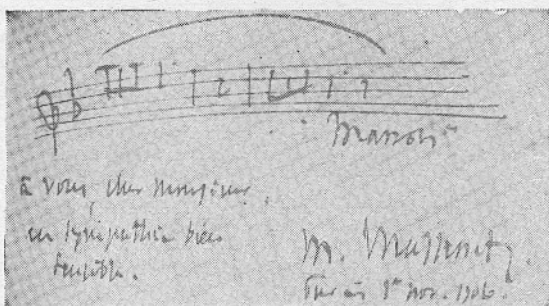 Manon
à vous, cher Monsieur,
en sympathie bien
sensible.
M. Massenet.
1er nov. 1906.